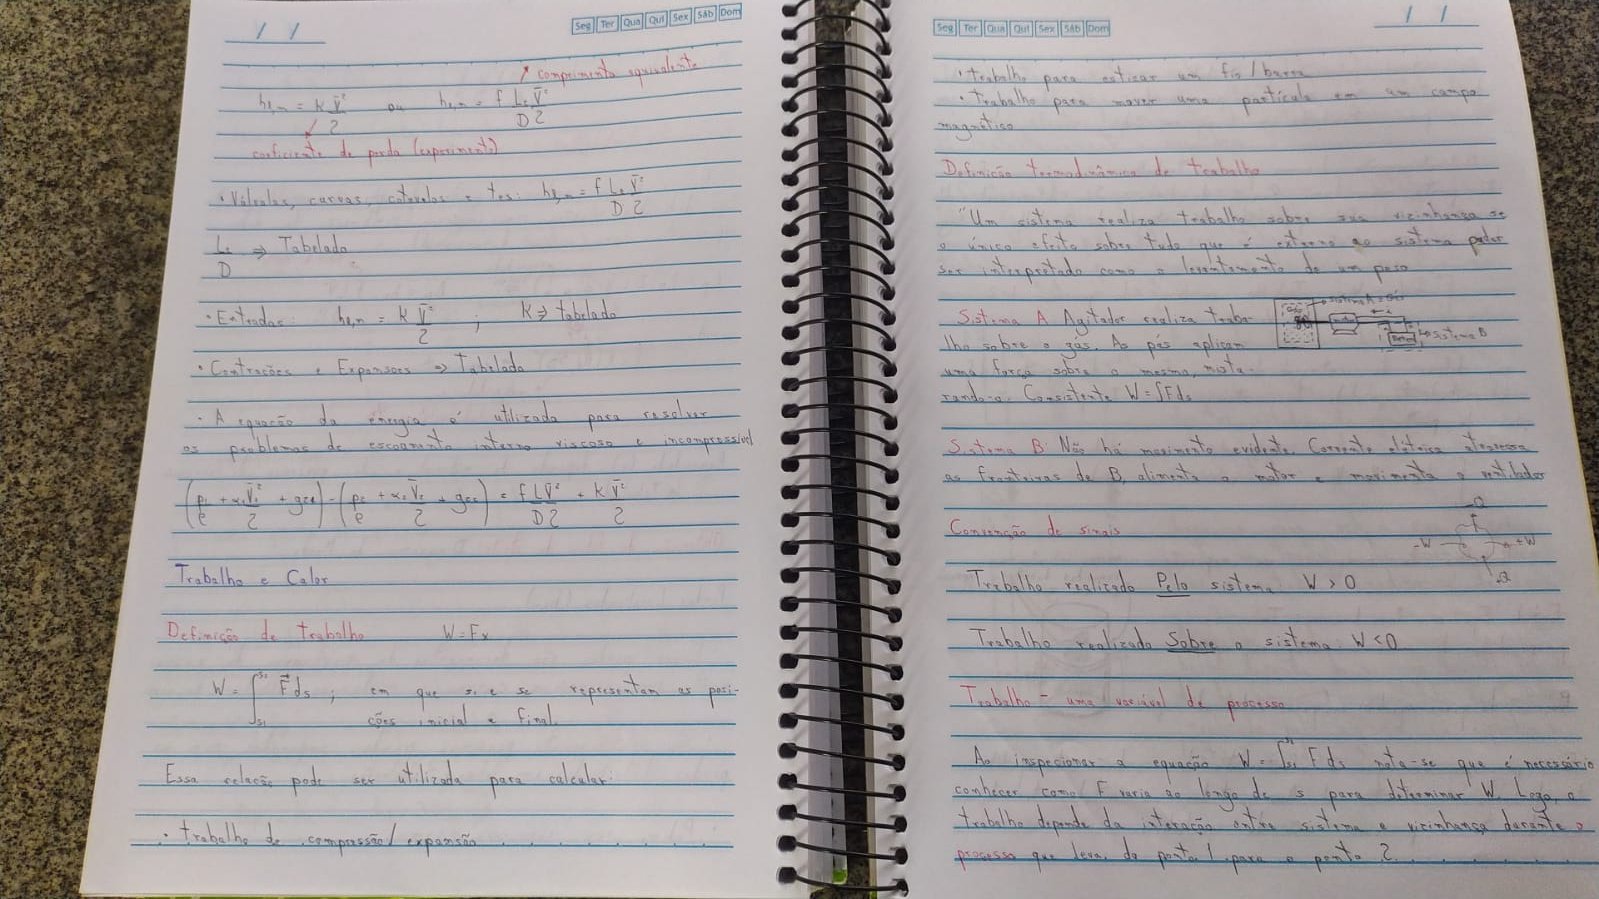 / /
Seg Ter Qua Qui Sex Sáb Dom
comprimento equivalente
hl,m = K V̄²/2 ou hl,m = f Le/D V̄²/2
coeficiente de perda (experimento)
• Válvulas, curvas, cotovelos e tes: hl,m = f Le/D V̄²/2
Le/D ⇒ Tabelado
• Entradas: hl,m = K V̄²/2 ; K ⇒ tabelado
• Contrações e Expansoes ⇒ Tabelado
• A equação da energia é utilizada para resolver
os problemas de escoamento interno viscoso e incompressível
(p1/ρ + α1 V̄1²/2 + gz1) - (p2/ρ + α2 V̄2²/2 + gz2) = f L/D V̄²/2 + K V̄²/2
Trabalho e Calor
Definição de trabalho W = Fx
W = ∫s1 s2 F⃗ ds ; em que s1 e s2 representam as posi-
ções inicial e final.
Essa relação pode ser utilizada para calcular:
• trabalho de compressão/expansão
Seg Ter Qua Qui Sex Sáb Dom
/ /
• trabalho para esticar um fio/barra
• trabalho para mover uma partícula em um campo
magnético
Definição termodinâmica de trabalho
"Um sistema realiza trabalho sobre sua vizinhança se
o único efeito sobre tudo que é externo ao sistema puder
ser interpretado como o levantamento de um peso
Sistema A Agitador realiza traba-
lho sobre o gás. As pás aplicam
uma força sobre o mesmo,
Consistente W = ∫Fds
sistema A = Gás
Gás
sistema B
Sistema B Não há movimento evidente. Corrente elétrica atravessa
as fronteiras de B, alimenta o motor e movimenta o ventilador
Convenção de sinais
-Q
-W +W
+Q
Trabalho realizado Pelo sistema W > 0
Trabalho realizado Sobre o sistema W < 0
Trabalho - uma variável de processo
Ao inspecionar a equação W = ∫s1 s2 F ds nota-se que é necessário
conhecer como F varia ao longo de s para determinar W. Logo, o
trabalho depende da interação entre sistema e vizinhança durante o
processo que leva do ponto 1 para o ponto 2.